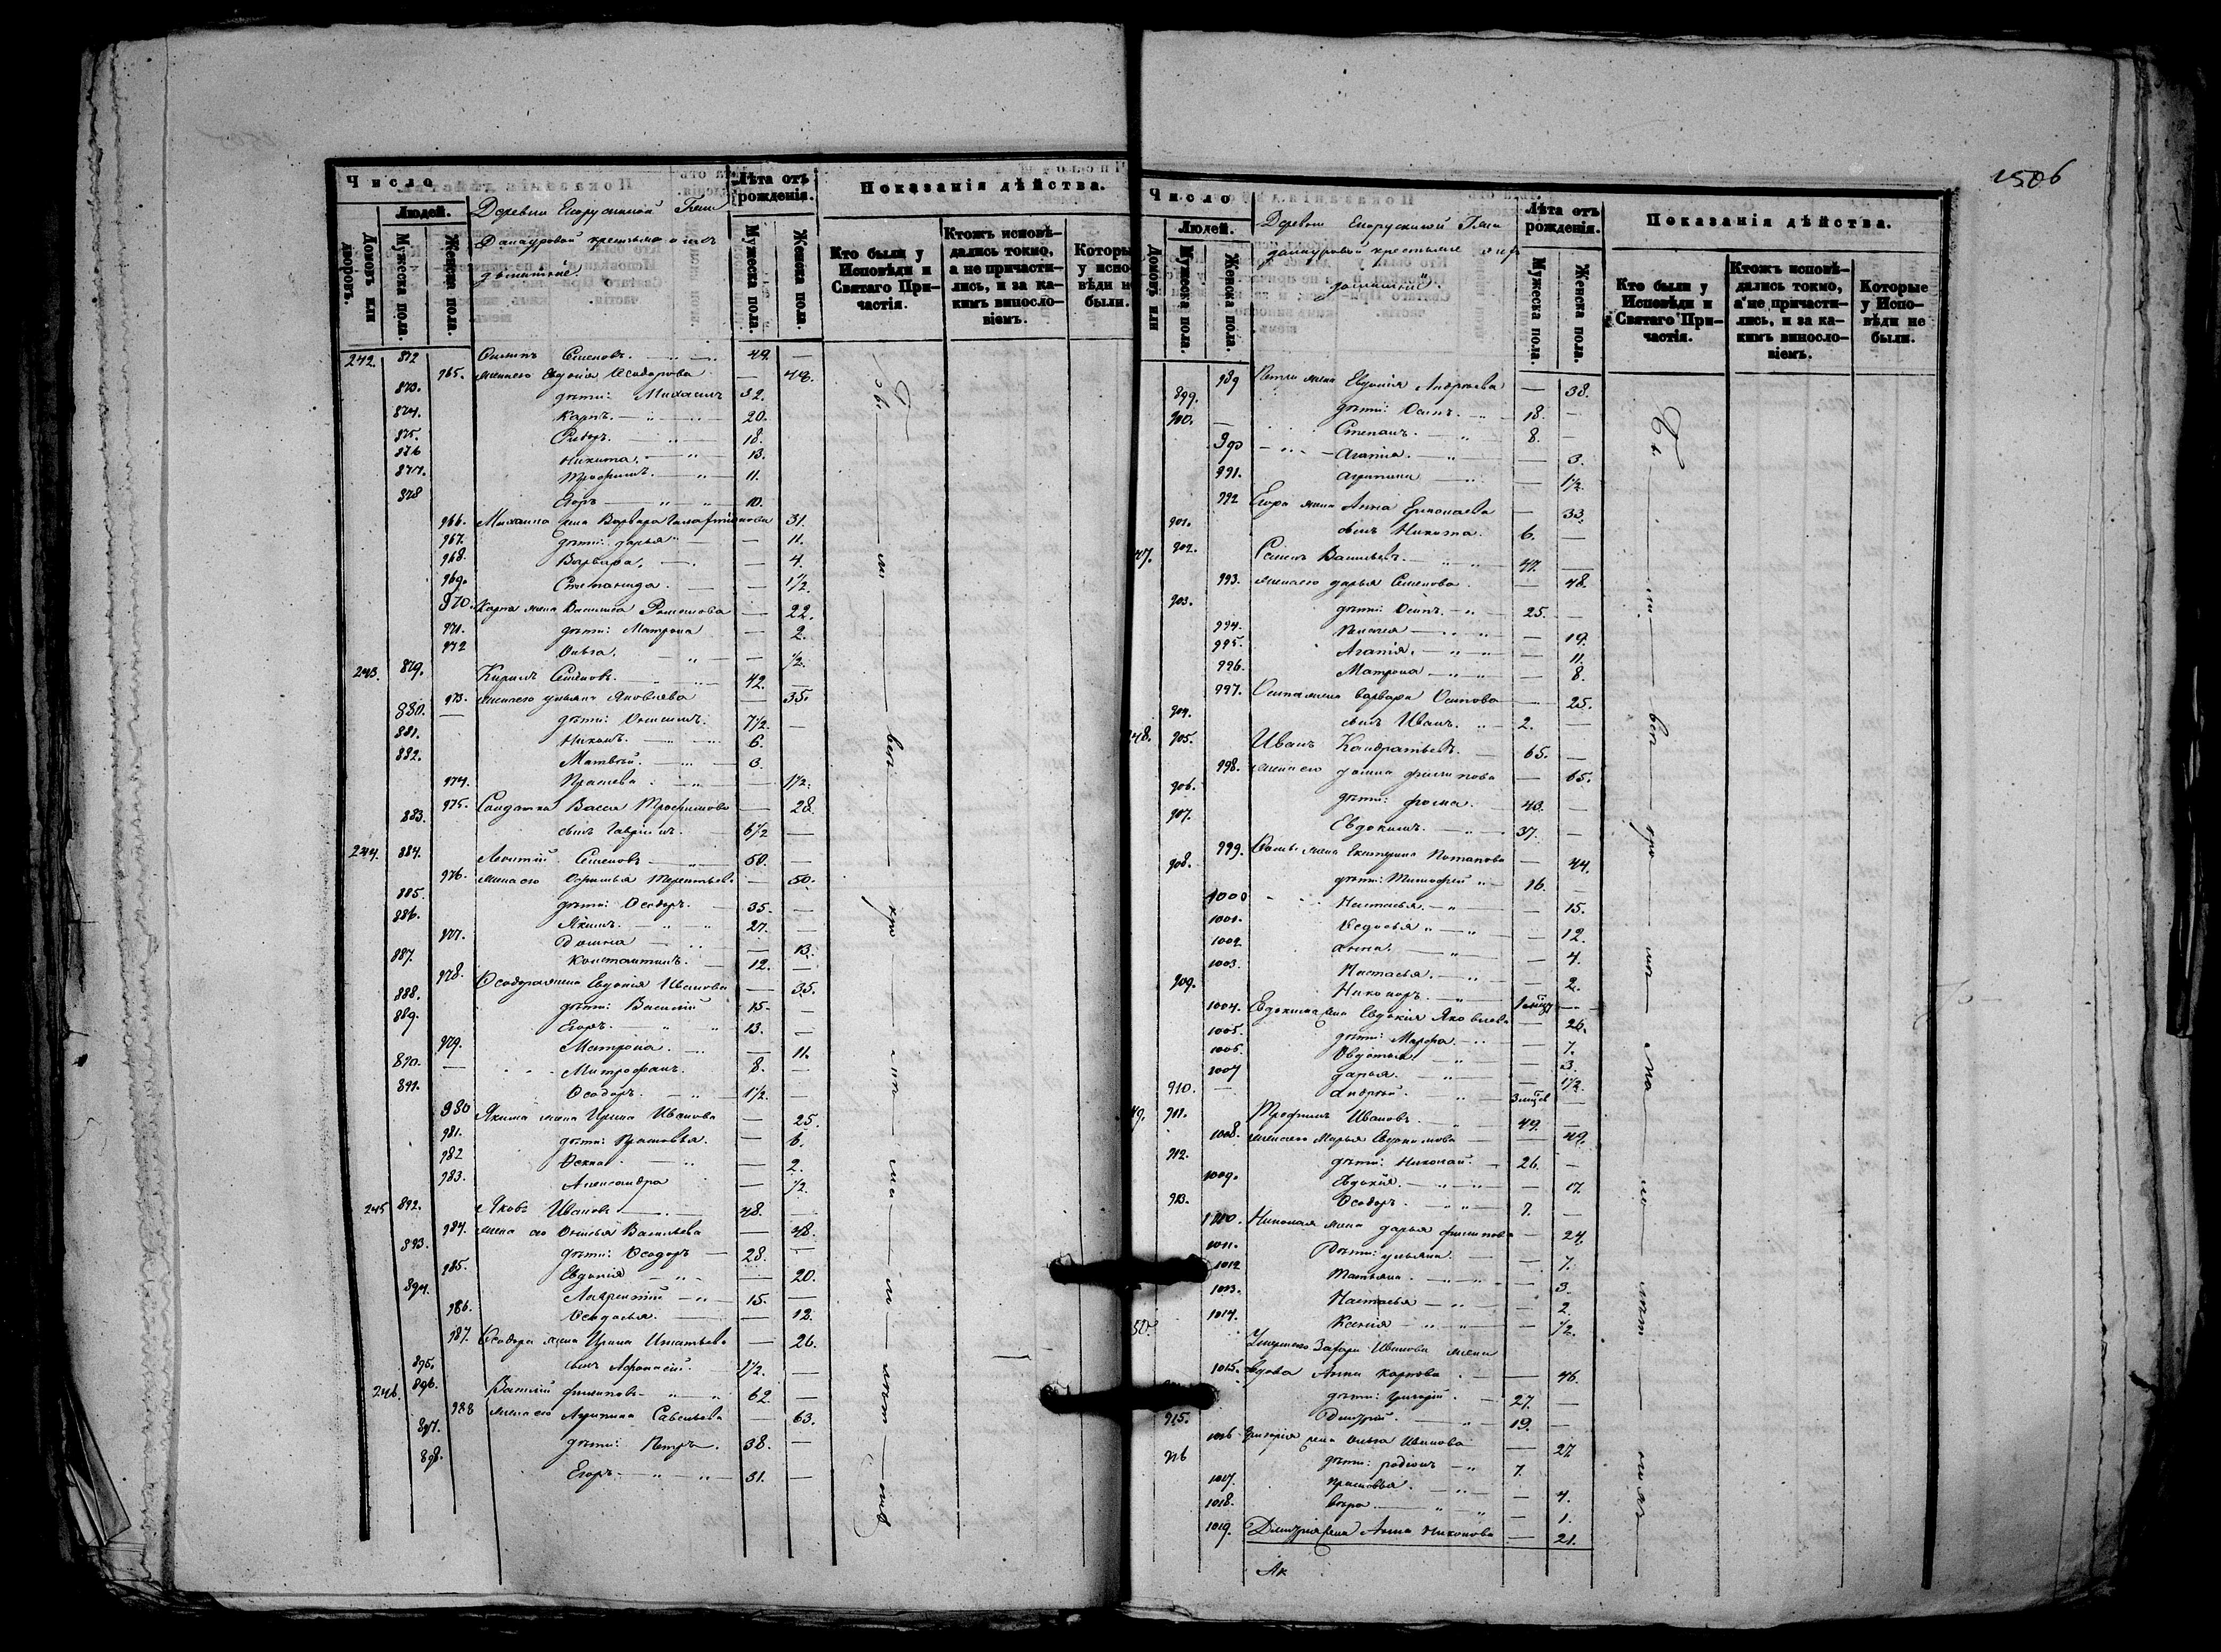 1506
Число
Людей.
Домовъ или дворовъ.
Мужеска пола.
Женска пола.
Деревни
крестьяне и ихъ
домашніе
Лѣта отъ рожденія.
Мужеска пола.
Женска пола.
Показанія дѣйства.
Кто были у Исповѣди и Святаго Причастія.
Ктожъ исповѣдались токмо, а не причастились, и за какимъ винословіемъ.
Которы у испо- вѣди н были.
242. 872 Семеновъ. 49. —
965. жена его Евдокія Ѳеодорова — 48.
873. дѣти: Михаилъ 32.
874. Карпъ. 20.
875. Ѳедоръ. 18.
876 Никита. 13.
877. Трофимъ. 11.
878 Егоръ 10.
966. Михаила жена Варвара 31.
967. дѣти: Дарья — 11.
968. Варвара. — 4.
969. Степанида. — 1½.
970. Карпа жена Василиса — 22.
971. дѣти: Матрона — 2.
972 Ольга. — ½.
243. 879. Кирилъ Семеновъ. 42. —
973. жена его Ульяна Яковлева — 35.
880. — дѣти: 7½. —
881. Никонъ. 6.
882. Матвѣй. 3.
974. 1½.
975. Солдатка Васса Трофимова — 28.
883. сынъ Гавріилъ. 6½ —
244. 884. Леонтій Семеновъ 50. —
976. жена его Терентьева — 50.
885. дѣти: Ѳеодоръ. 35. —
886. Якимъ. 27. —
977. Домна — 13.
887. Константинъ. 12. —
978. Ѳеодора жена Евдокія Иванова — 35.
888. дѣти: Василій 15. —
889. Егоръ. 13. —
979. Матрона. — 11.
890. — Митрофанъ. 8. —
891. Ѳеодоръ. 1½. —
980 Якима жена Ирина Иванова — 25.
981. дѣти: Прасковья. — 6.
982 — 2.
983. Александра — ½.
245 892. Яковъ Ивановъ 48. —
984. жена его Васильева — 48.
893. дѣти: Ѳеодоръ 28. —
985. Евдокія — 20.
894. Лаврентій 15. —
986. Ѳеодосья. — 12.
987. Ѳеодора жена Ирина Игнатьева — 26.
895. сынъ Афонасій. 1½. —
246. 896. Василій Филиповъ 62. —
988 жена его Агрипина Савельева — 63.
897. дѣти: Петръ. 38. —
898. Егоръ 31. —
Число
Людей.
Домовъ или
Мужеска пола.
Женска пола.
Деревни
крестьяне и ихъ
домашніе
Лѣта отъ рожденія.
Мужеска пола.
Женска пола.
Показанія дѣйства.
Кто были у Исповѣди и Святаго Причастія.
Ктожъ исповѣдались токмо, а не причастились, и за какимъ винословіемъ.
Которые у Испо- вѣди не были.
989 Петра жена Евдокія Андреева — 38.
899. дѣти: Осипъ. 18. —
900. — Степанъ. 8. —
990 Агапія. — 3.
991. Агрипина — 1½.
992 Егора жена Анна Ермолаева — 33.
901. сынъ Никита. 6. —
47. 902. Семенъ Васильевъ. 47. —
993. жена его Дарья Семенова. — 48.
903. дѣти: Осипъ. 25. —
994. — 19.
995. Агапія. — 11.
996. Матрона — 8.
997. Осипа жена Варвара Осипова — 25.
904. сынъ Иванъ. 2. —
48. 905. Иванъ Кандратьевъ. 65. —
998. жена его Домна Филипова — 65.
906. дѣти: Фома. 40. —
907. Евдокимъ. 37. —
999. Фомы жена Екатерина Потапова — 44.
908. дѣти: Тимофей 16. —
1000 Настасья. — 15.
1001. Ѳедосья — 12.
1002 Анна. — 4.
1003. Настасья. — 2.
909. Никоноръ. —
1004. Евдокима жена Евдокія Яковлева — 26.
1005. дѣти: Марфа. — 7.
1006. Авдотья. — 3.
1007 Дарья. — 1½.
910. — Андрей. —
49. 911. Трофимъ Ивановъ. 49. —
1008. жена его Марья Евдокимова — 49.
912. дѣти: Николай. 26. —
1009. Евдокія. — 17.
913. Ѳеодоръ. 7. —
1010. Николая жена Дарья Филипова — 24.
1011. дѣти: Ульяна. — 7.
1012 Татьяна. — 3.
1013. Настасья — 2.
1014. Ксенія — ½.
50. Умершаго Захара Иванова жена
1015. вдова Анна Карпова — 46.
дѣти: Григорій. 27. —
915. Дмитрій. 19. —
1016 Григорія жена Ольга Иванова — 27
916 дѣти: Родіонъ 7. —
1017. Прасковья. — 4.
1018. Вѣра. — 1.
1019. Дмитрія жена Анна Никонова — 21.
Ак